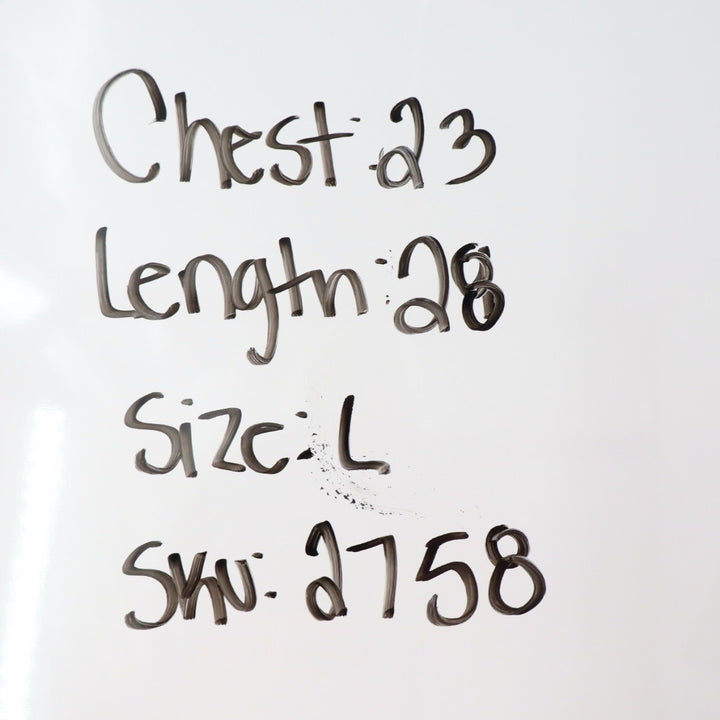 Chest: 23
Length: 28
Size: L
SKU: 2758